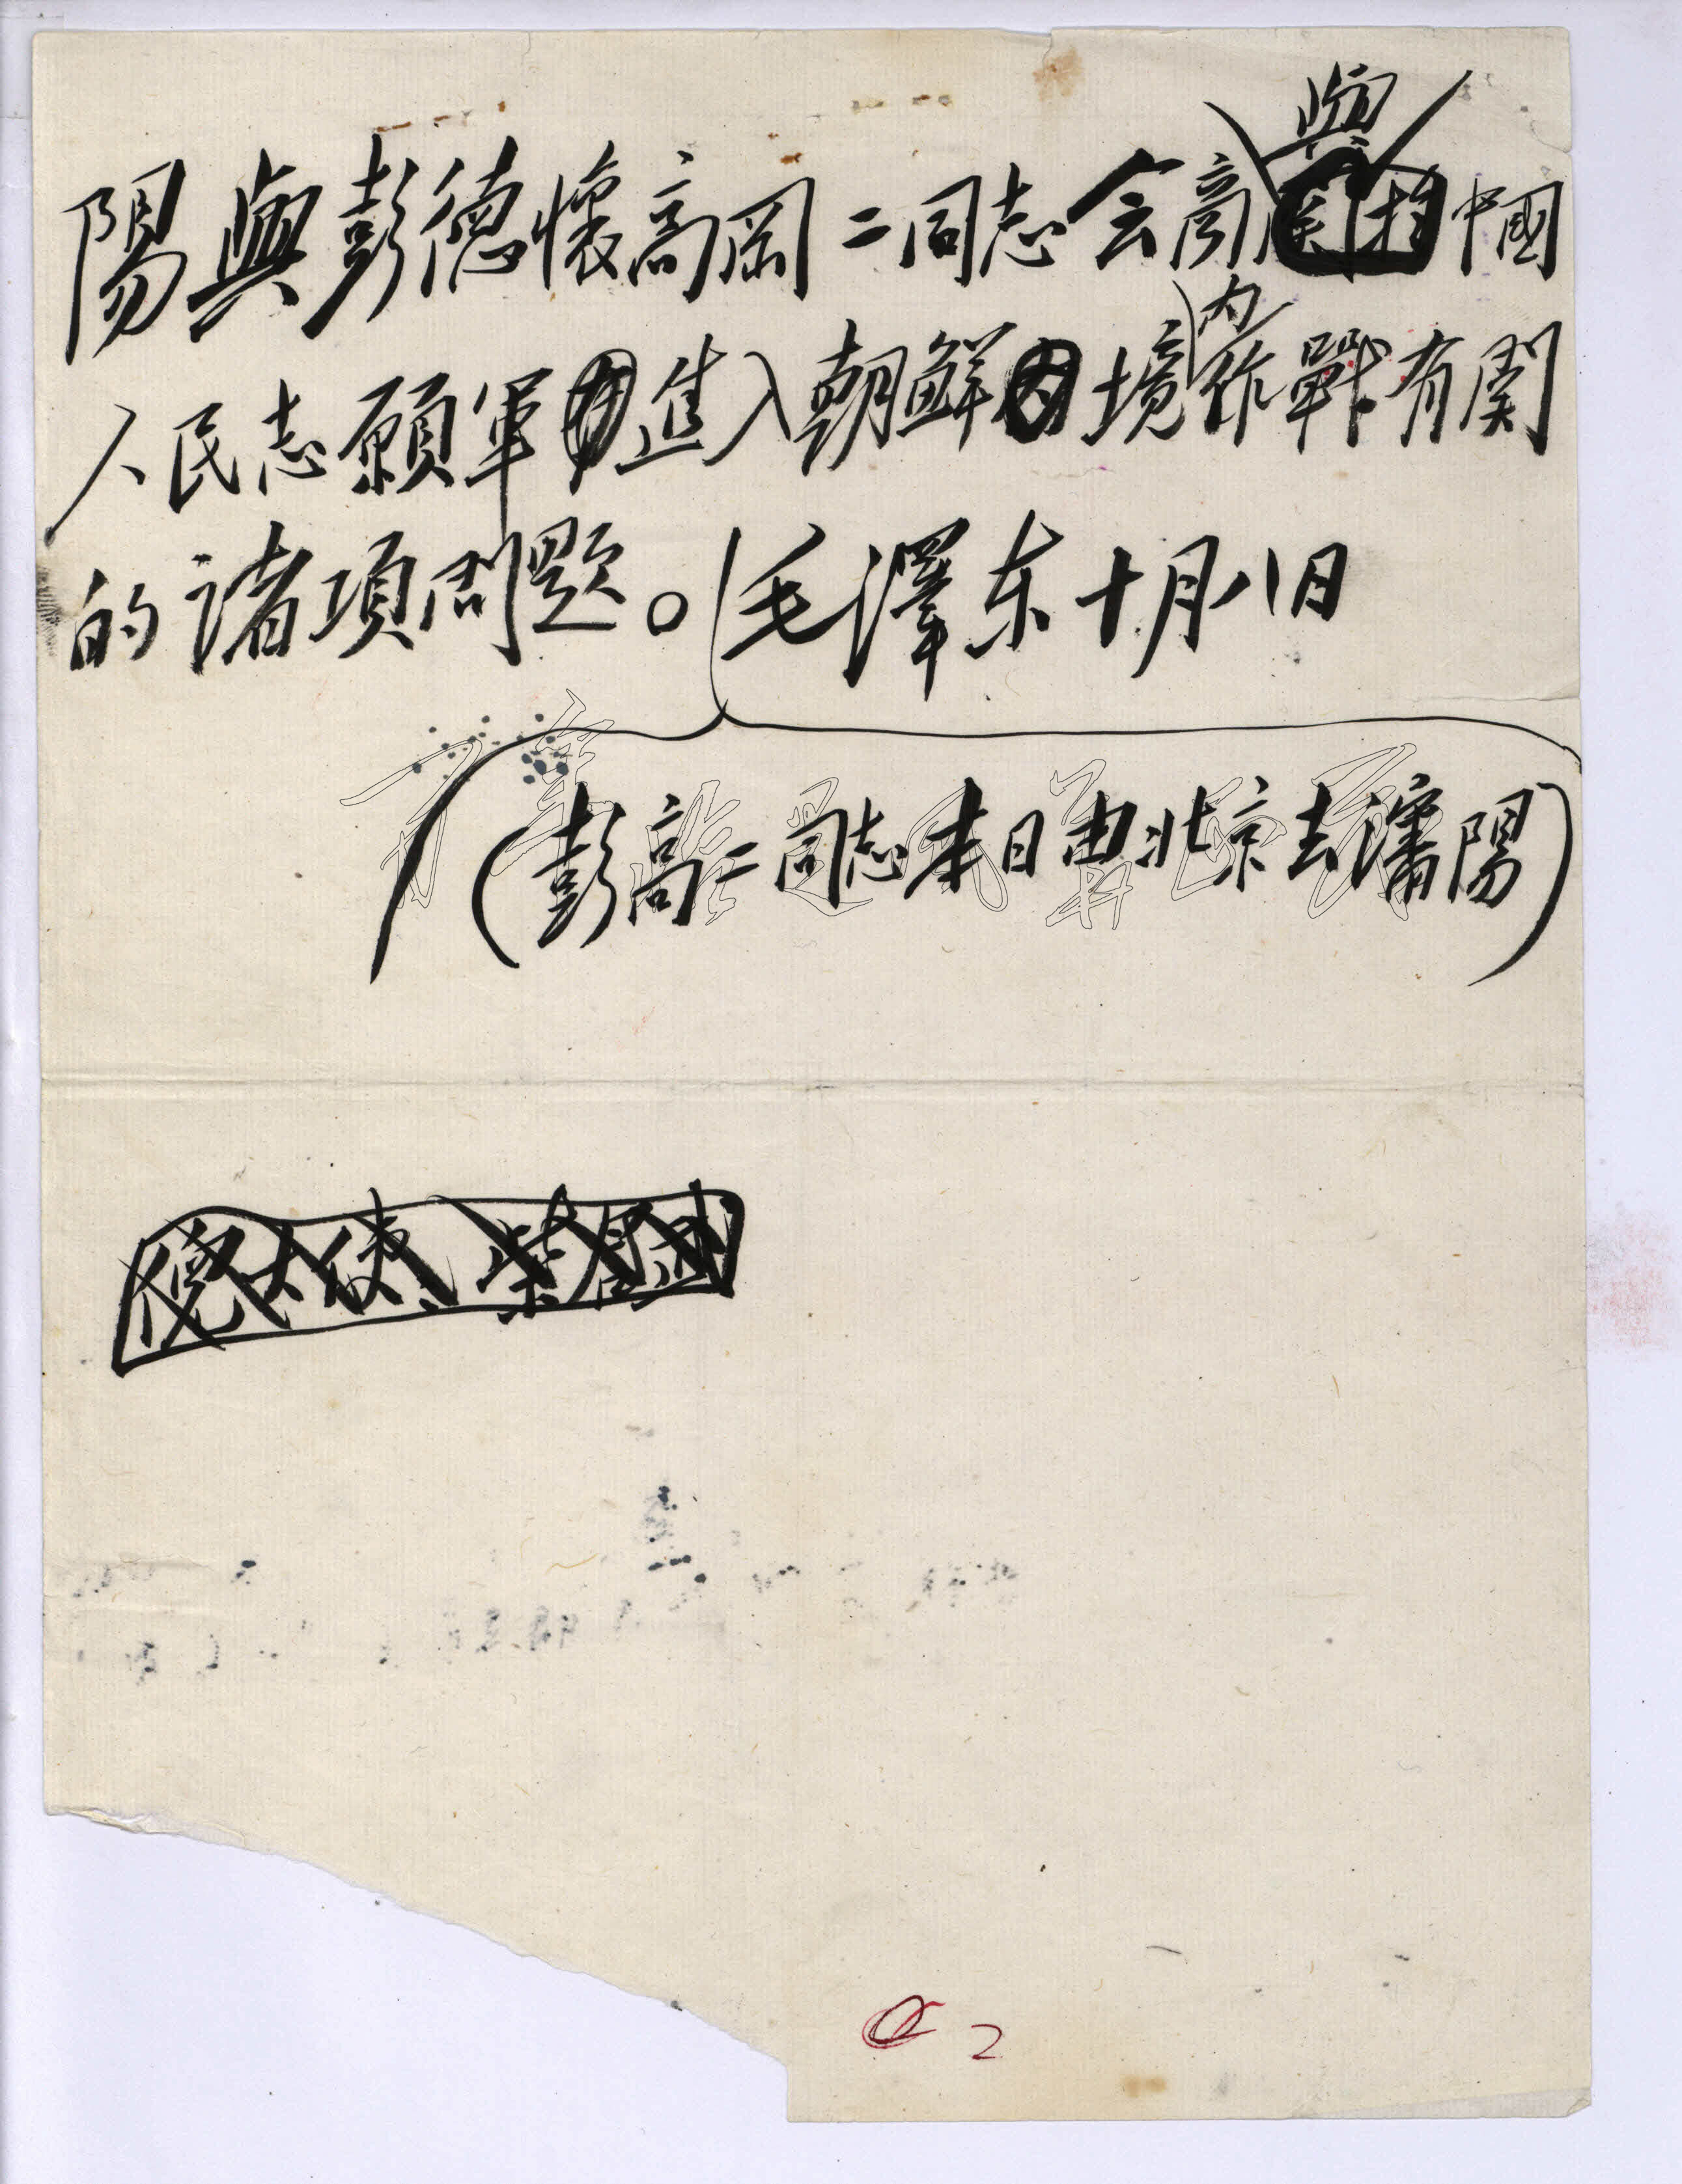 陽與彭德懷高岡二同志会商與中國
人民志願軍進入朝鮮境内作戰有関
的諸項問題。毛澤东十月八日
(彭高二同志本日由北京去瀋陽)
倪大使 柴
2